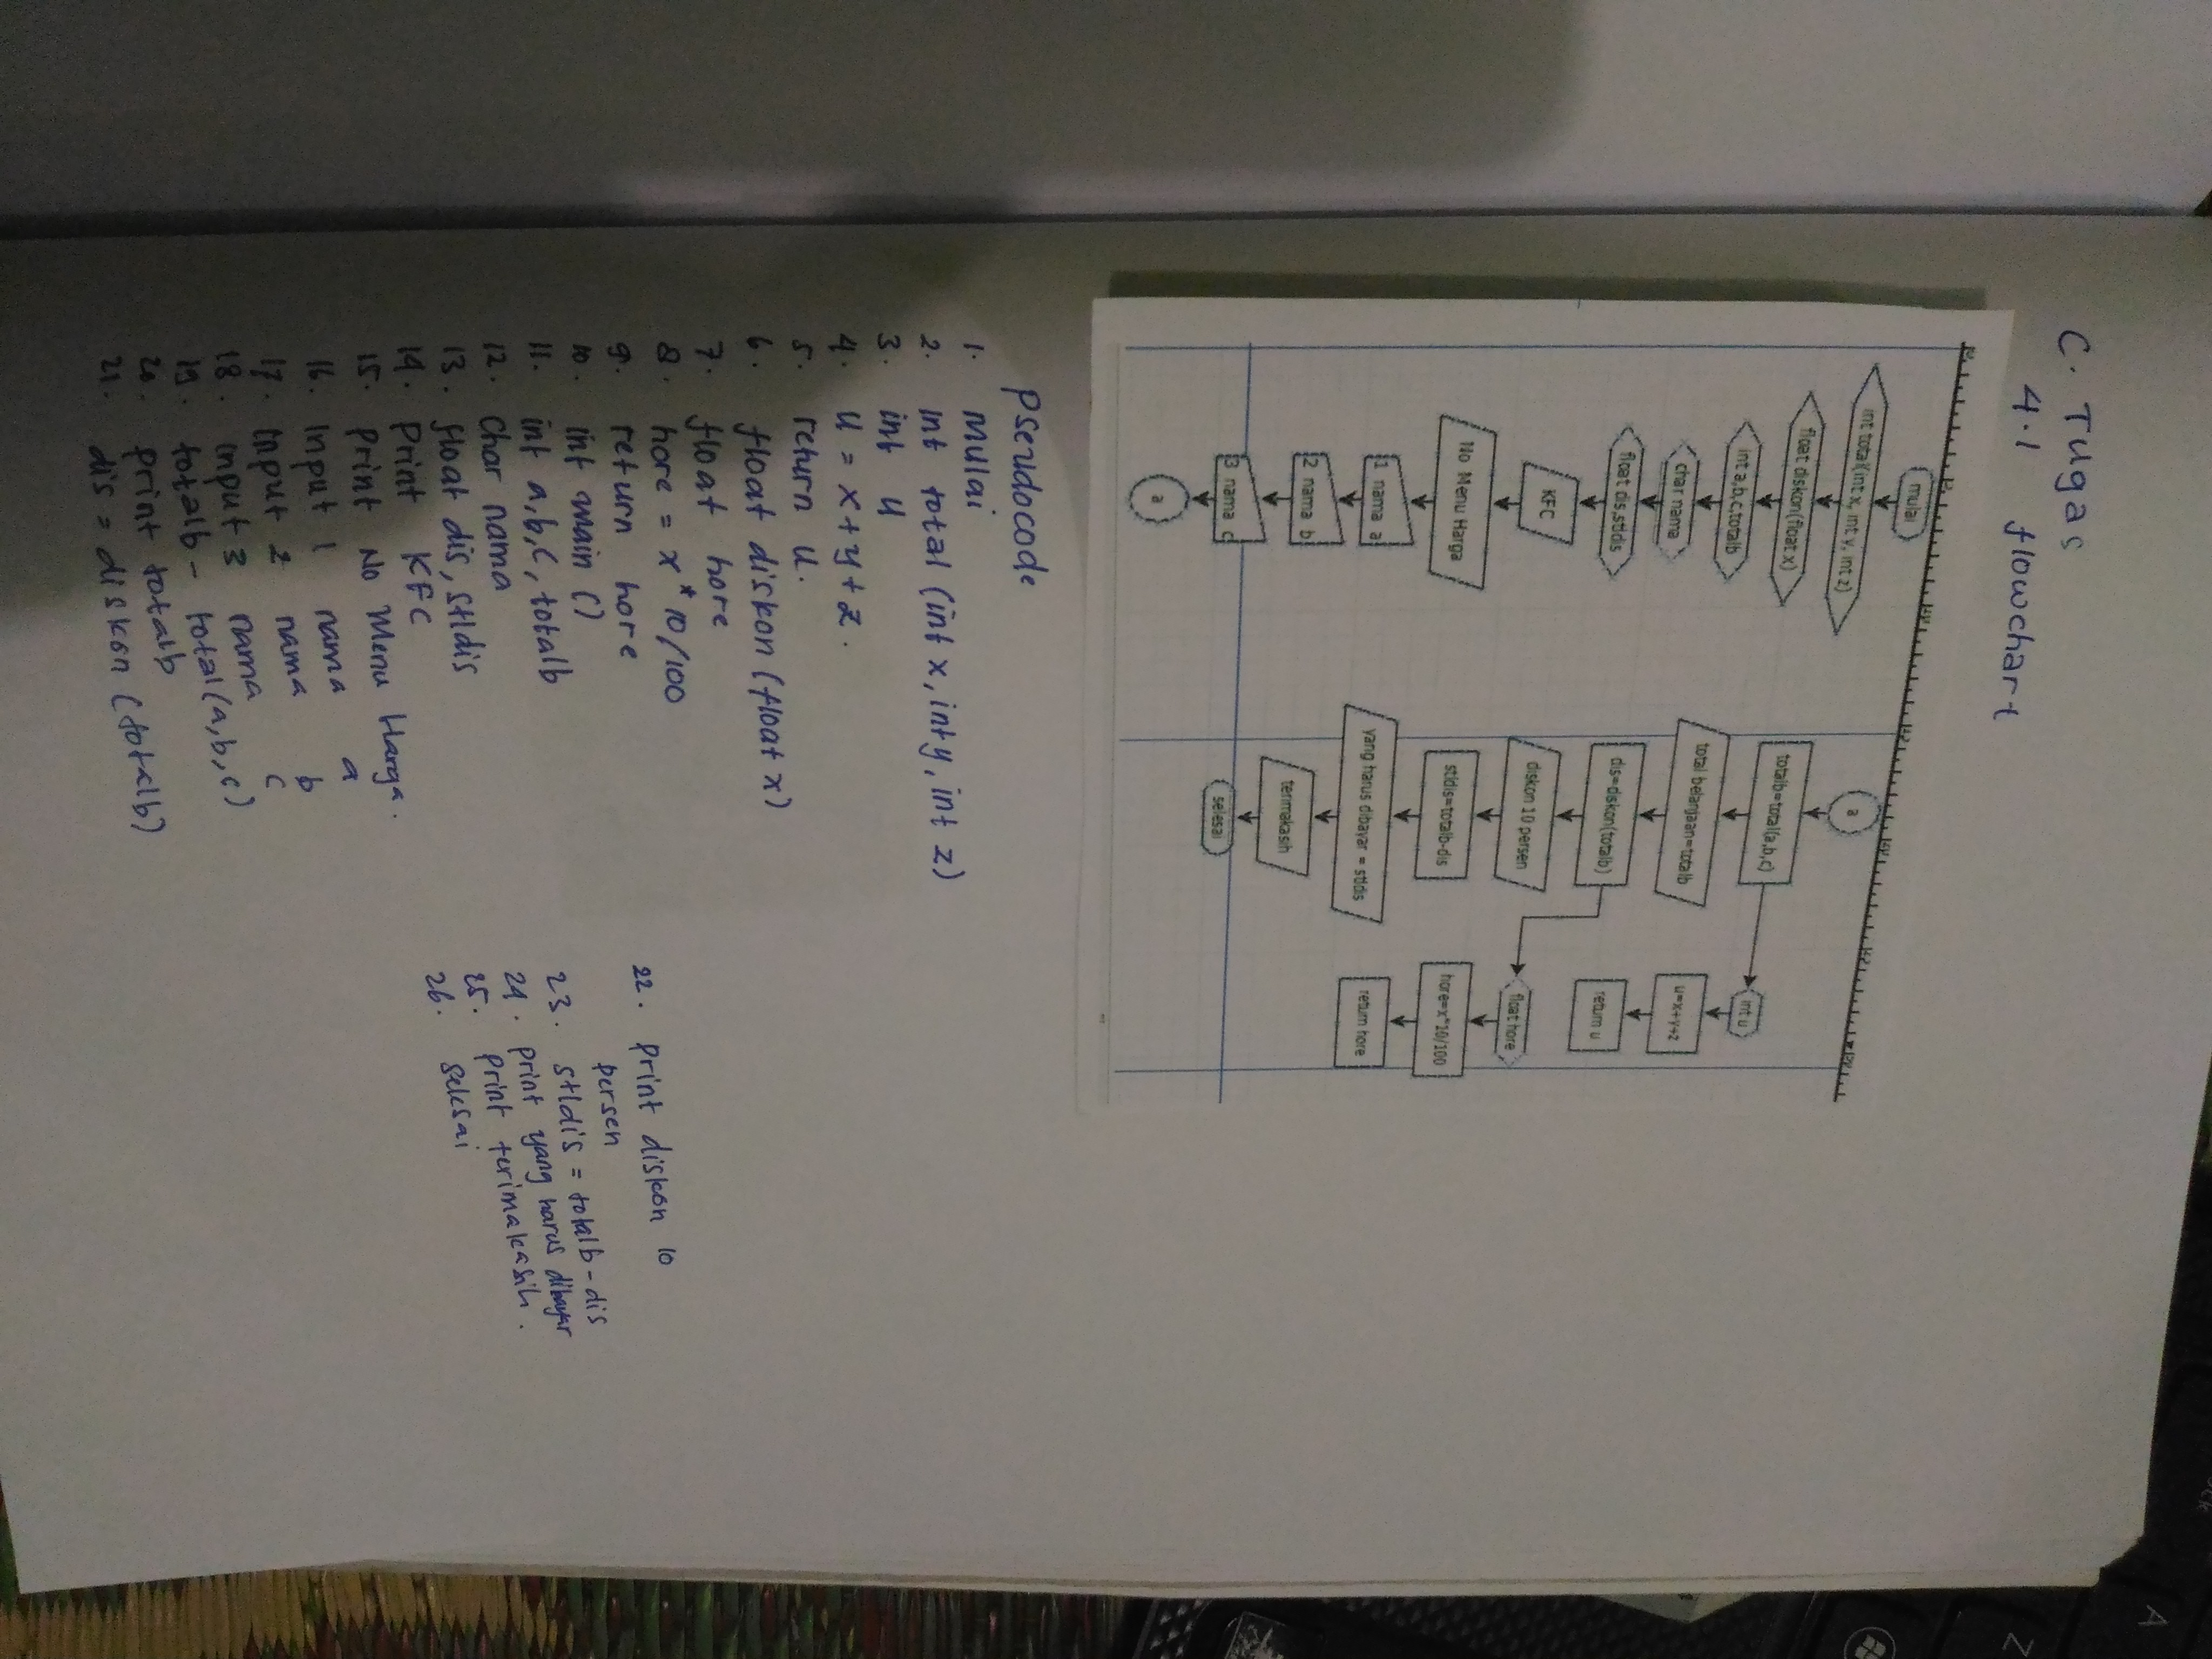 C. Tugas
4.1 flowchart
mulai
int total(int x, int y, int z)
float diskon(float x)
int a,b,c,totalb
char nama
float dis,stldis
KFC
No Menu Harga
1 nama a
2 nama b
3 nama c
a
a
totalb=total(a,b,c)
total belanjaan=totalb
dis=diskon(totalb)
diskon 10 persen
stldis=totalb-dis
yang harus dibayar = stldis
terimakasih
selesai
int u
u=x+y+z
return u
float hore
hore=x*10/100
return hore
Pseudocode
1. mulai
2. int total (int x, int y, int z)
3. int u
4. u = x+y+z.
5. return u.
6. float diskon (float x)
7. float hore
8. hore = x*10/100
9. return hore
10. int main ()
11. int a,b,c, totalb
12. char nama
13. float dis, stldis
14. print KFC
15. print No Menu Harga.
16. Input 1 nama a
17. Input 2 nama b
18. Input 3 nama c
19. totalb - total(a,b,c)
20. print totalb
21. dis = diskon (totalb)
22. print diskon 10
persen
23. stldis = totalb-dis
24. print yang harus dibayar
25. print terimakasih.
26. selesai